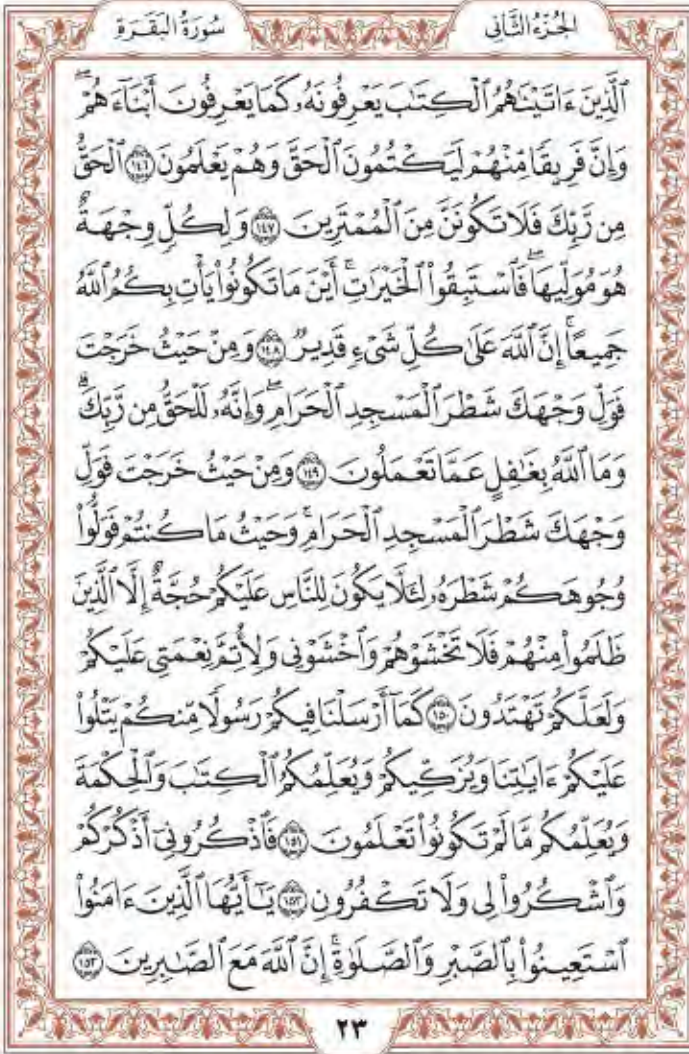 سُورَةُ البَقَرَةِ
الجُزْءُ الثَّانِي
ٱلَّذِينَ ءَاتَيْنَٰهُمُ ٱلْكِتَٰبَ يَعْرِفُونَهُۥ كَمَا يَعْرِفُونَ أَبْنَآءَهُمْۖ
وَإِنَّ فَرِيقًا مِّنْهُمْ لَيَكْتُمُونَ ٱلْحَقَّ وَهُمْ يَعْلَمُونَ ١٤٦ ٱلْحَقُّ
مِن رَّبِّكَ فَلَا تَكُونَنَّ مِنَ ٱلْمُمْتَرِينَ ١٤٧ وَلِكُلٍّ وِجْهَةٌ
هُوَ مُوَلِّيهَاۖ فَٱسْتَبِقُوا۟ ٱلْخَيْرَٰتِۚ أَيْنَ مَا تَكُونُوا۟ يَأْتِ بِكُمُ ٱللَّهُ
جَمِيعًاۚ إِنَّ ٱللَّهَ عَلَىٰ كُلِّ شَىْءٍ قَدِيرٌ ١٤٨ وَمِنْ حَيْثُ خَرَجْتَ
فَوَلِّ وَجْهَكَ شَطْرَ ٱلْمَسْجِدِ ٱلْحَرَامِۖ وَإِنَّهُۥ لَلْحَقُّ مِن رَّبِّكَۗ
وَمَا ٱللَّهُ بِغَٰفِلٍ عَمَّا تَعْمَلُونَ ١٤٩ وَمِنْ حَيْثُ خَرَجْتَ فَوَلِّ
وَجْهَكَ شَطْرَ ٱلْمَسْجِدِ ٱلْحَرَامِۚ وَحَيْثُ مَا كُنتُمْ فَوَلُّوا۟
وُجُوهَكُمْ شَطْرَهُۥ لِئَلَّا يَكُونَ لِلنَّاسِ عَلَيْكُمْ حُجَّةٌ إِلَّا ٱلَّذِينَ
ظَلَمُوا۟ مِنْهُمْ فَلَا تَخْشَوْهُمْ وَٱخْشَوْنِى وَلِأُتِمَّ نِعْمَتِى عَلَيْكُمْ
وَلَعَلَّكُمْ تَهْتَدُونَ ١٥٠ كَمَآ أَرْسَلْنَا فِيكُمْ رَسُولًا مِّنكُمْ يَتْلُوا۟
عَلَيْكُمْ ءَايَٰتِنَا وَيُزَكِّيكُمْ وَيُعَلِّمُكُمُ ٱلْكِتَٰبَ وَٱلْحِكْمَةَ
وَيُعَلِّمُكُم مَّا لَمْ تَكُونُوا۟ تَعْلَمُونَ ١٥١ فَٱذْكُرُونِىٓ أَذْكُرْكُمْ
وَٱشْكُرُوا۟ لِى وَلَا تَكْفُرُونِ ١٥٢ يَٰٓأَيُّهَا ٱلَّذِينَ ءَامَنُوا۟
ٱسْتَعِينُوا۟ بِٱلصَّبْرِ وَٱلصَّلَوٰةِۚ إِنَّ ٱللَّهَ مَعَ ٱلصَّٰبِرِينَ ١٥٣
٢٣